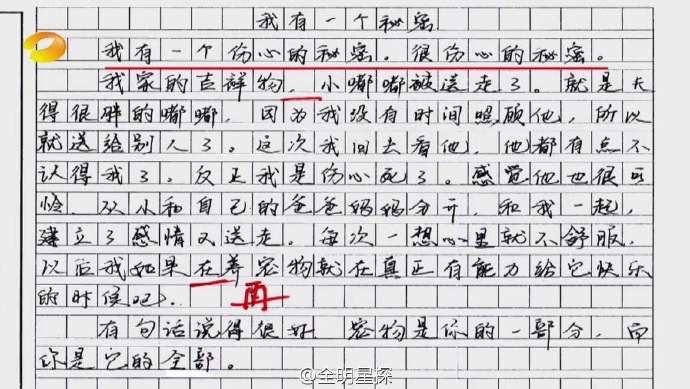 我有一个秘密
我有一个伤心的秘密。很伤心的秘密。
我家的吉祥物,小嘟嘟被送走了。就是长
得很胖的嘟嘟,因为我没有时间照顾他,所以
就送给别人了。这次我回去看他,他都有点不
认得我了。反正我是伤心死了。感觉他也很可
怜,从小和自己的爸爸妈妈分开,和我一起,
建立了感情又送走。每次一想心里就不舒服,
以后我如果在养宠物就在真正有能力给它快乐
的时候吧。 再
有句话说得很好 宠物是你的一部分,而
你是它的全部。
@全明星探